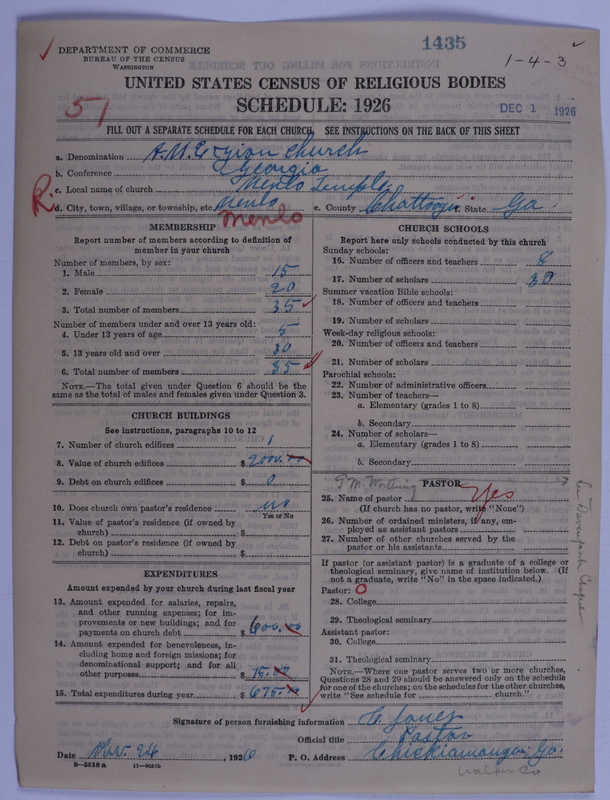 1435
1-4-3
DEPARTMENT OF COMMERCE
BUREAU OF THE CENSUS
WASHINGTON
UNITED STATES CENSUS OF RELIGIOUS BODIES
SCHEDULE: 1926
51
DEC 1 1926
FILL OUT A SEPARATE SCHEDULE FOR EACH CHURCH. SEE INSTRUCTIONS ON THE BACK OF THIS SHEET
a. Denomination A.M.E. Zion Church
b. Conference Georgia
c. Local name of church Menlo Temple
R
d. City, town, village, or township, etc. Menlo e. County Chattooga f. State Ga
Menlo
MEMBERSHIP
Report number of members according to definition of
member in your church
Number of members, by sex:
1. Male 15
2. Female 20
3. Total number of members 35
Number of members under and over 13 years old:
4. Under 13 years of age 5
5. 13 years old and over 30
6. Total number of members 35
NOTE.—The total given under Question 6 should be the
same as the total of males and females given under Question 3.
CHURCH BUILDINGS
See instructions, paragraphs 10 to 12
7. Number of church edifices 1
8. Value of church edifices $ 2000.00
9. Debt on church edifices $ 0
10. Does church own pastor's residence no
Yes or No
11. Value of pastor's residence (if owned by
church) $
12. Debt on pastor's residence (if owned by
church) $
EXPENDITURES
Amount expended by your church during last fiscal year
13. Amount expended for salaries, repairs,
and other running expenses; for im-
provements or new buildings; and for
payments on church debt $ 600.00
14. Amount expended for benevolences, in-
cluding home and foreign missions; for
denominational support; and for all
other purposes $ 75.00
15. Total expenditures during year $ 675.00
CHURCH SCHOOLS
Report here only schools conducted by this church
Sunday schools:
16. Number of officers and teachers 8
17. Number of scholars 30
Summer vacation Bible schools:
18. Number of officers and teachers
19. Number of scholars
Week-day religious schools:
20. Number of officers and teachers
21. Number of scholars
Parochial schools:
22. Number of administrative officers
23. Number of teachers—
a. Elementary (grades 1 to 8)
b. Secondary
24. Number of scholars—
a. Elementary (grades 1 to 8)
b. Secondary
PASTOR
25. Name of pastor Yes
(If church has no pastor, write "None")
26. Number of ordained ministers, if any, em-
ployed as assistant pastors
27. Number of other churches served by the
pastor or his assistants
If pastor (or assistant pastor) is a graduate of a college or
theological seminary, give name of institution below. (If
not a graduate, write "No" in the space indicated.)
Pastor: 0
28. College
29. Theological seminary
Assistant pastor:
30. College
31. Theological seminary
NOTE.—Where one pastor serves two or more churches,
Questions 28 and 29 should be answered only on the schedule
for one of the churches; on the schedules for the other churches,
write "See schedule for church."
Signature of person furnishing information C. Jones
Official title Pastor
Date Nov. 24, 1926 P. O. Address Chickamauga, Ga.
8-5518a
Walker Co